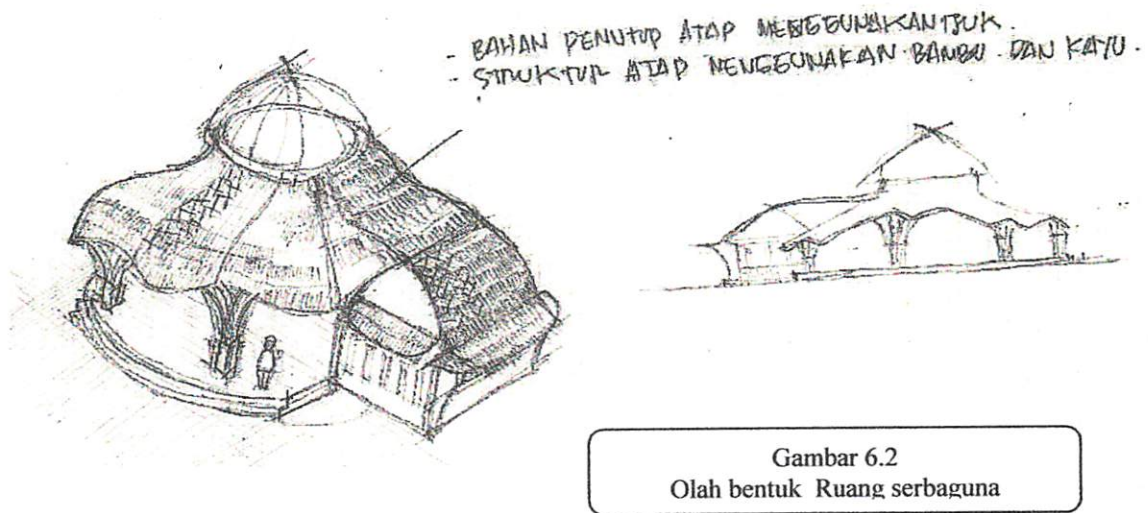 - BAHAN PENUTUP ATAP MENGGUNAKAN IJUK.
- STRUKTUR ATAP MENGGUNAKAN BAMBU DAN KAYU.
Gambar 6.2
Olah bentuk Ruang serbaguna